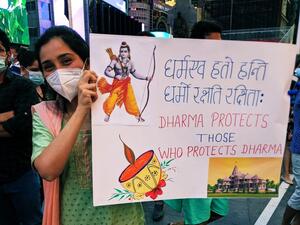 धर्मस्व हतो हन्ति
धर्मो रक्षति रक्षिता:
DHARMA PROTECTS
THOSE
WHO PROTECTS DHARMA